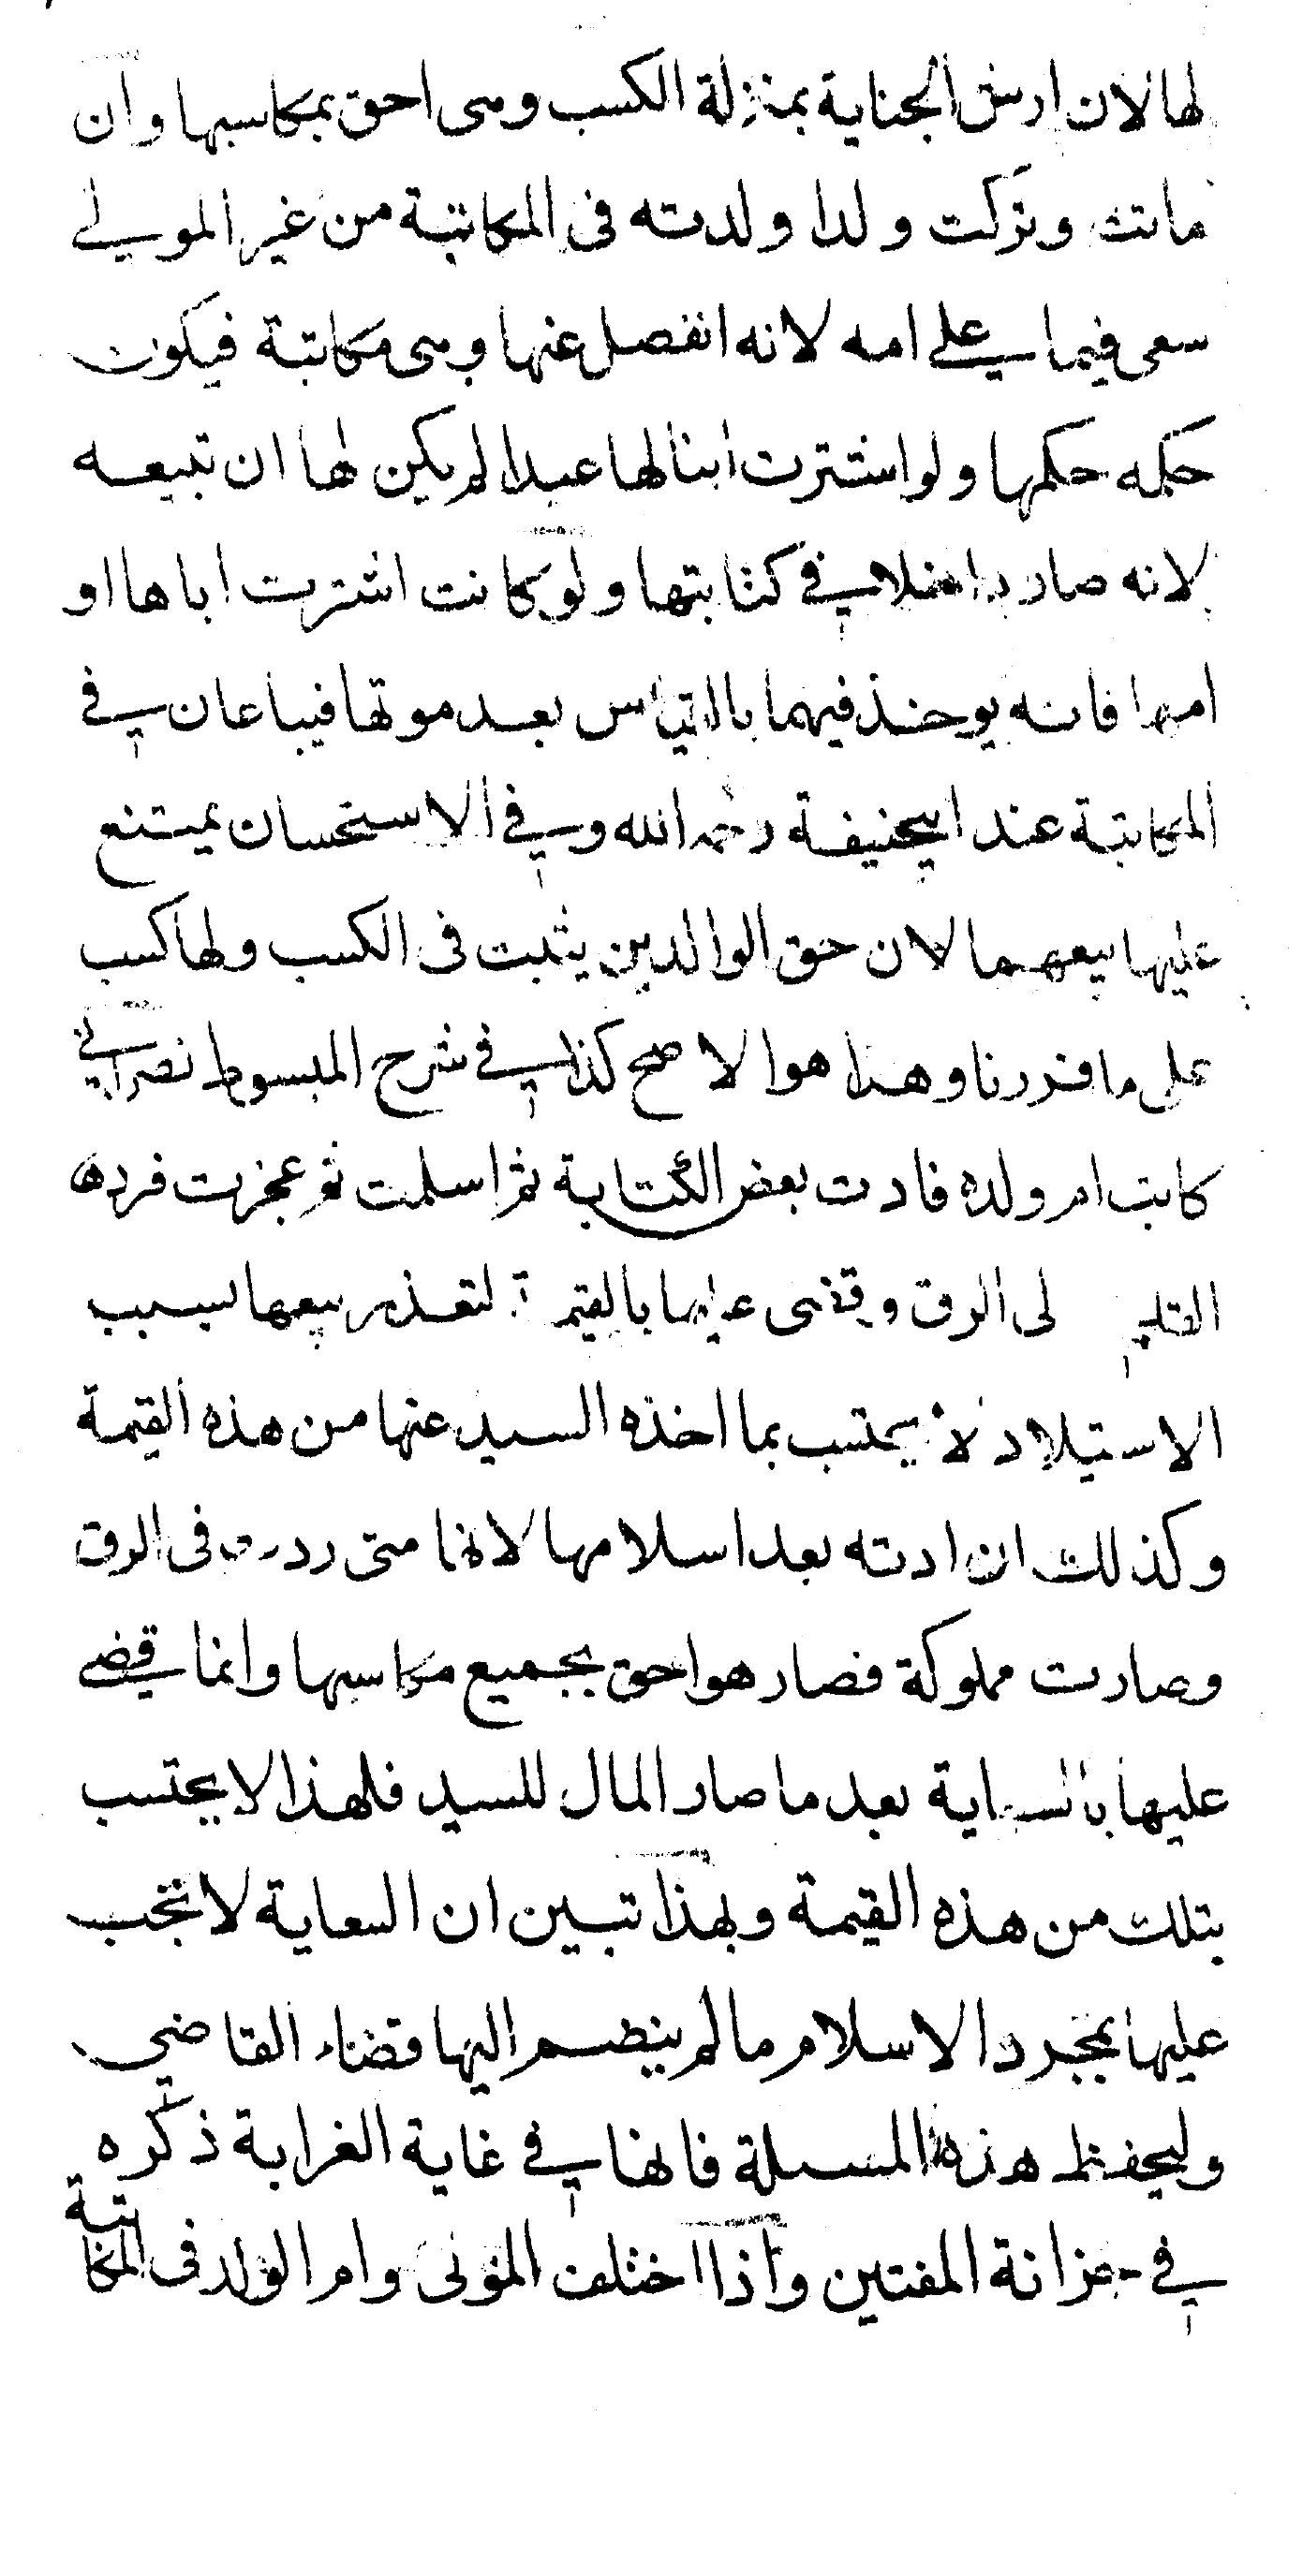 لها لان ارش الجناية بمنزلة الكسب وهى احق بمكاسبها وان
ماتت وتركت ولدا ولدته فى المكاتبة من غير المولى
سعى فيما على امه لانه انفصل عنها وهى مكاتبة فيكون
حكمه حكمها ولو اشترت ابنا لها عبدا لم يكن لها ان تبيعه
لانه صار داخلا فى كتابتها ولو كانت اشترت اباها او
امها فانه يوخذ فيهما بالقياس بعد موتها فيباعان فى
المكاتبة عند ابيحنيفة رحمه الله وفى الاستحسان يمتنع
عليها بيعهما لان حق الوالدين يثبت فى الكسب ولها كسب
على ما قررنا وهذا هو الاصح كذا فى شرح المبسوط نصرانى
كاتب ام ولده فادت بعض الكتابة ثم اسلمت ثم عجزت فردها
لى الرق وقضى عليها بالقيمة لتعذر بيعها بسبب
الاستيلاد لا يحتسب بما اخذه السيد عنها من هذه القيمة
وكذلك ان ادته بعد اسلامها لانها متى ردت فى الرق
وصارت مملوكة فصار هو احق بجميع مكاسبها وانما قضى
عليها بالسعاية بعد ما صار المال للسيد فلهذا لا يحتسب
بتلك من هذه القيمة وبهذا تبين ان السعاية لا تجب
عليها بمجرد الاسلام ما لم ينضم اليها قضاء القاضى
وليحفظ هذه المسئلة فانها فى غاية الغرابة ذكره
فى خزانة المفتين واذا اختلف المولى وام الولد فى المكاتبة